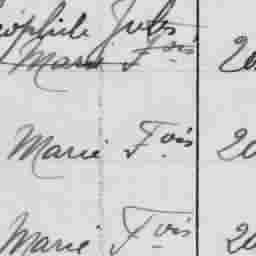 éophile Jules
Marie F.ois 20
Marie F.ois 20
Marie F.ois 20